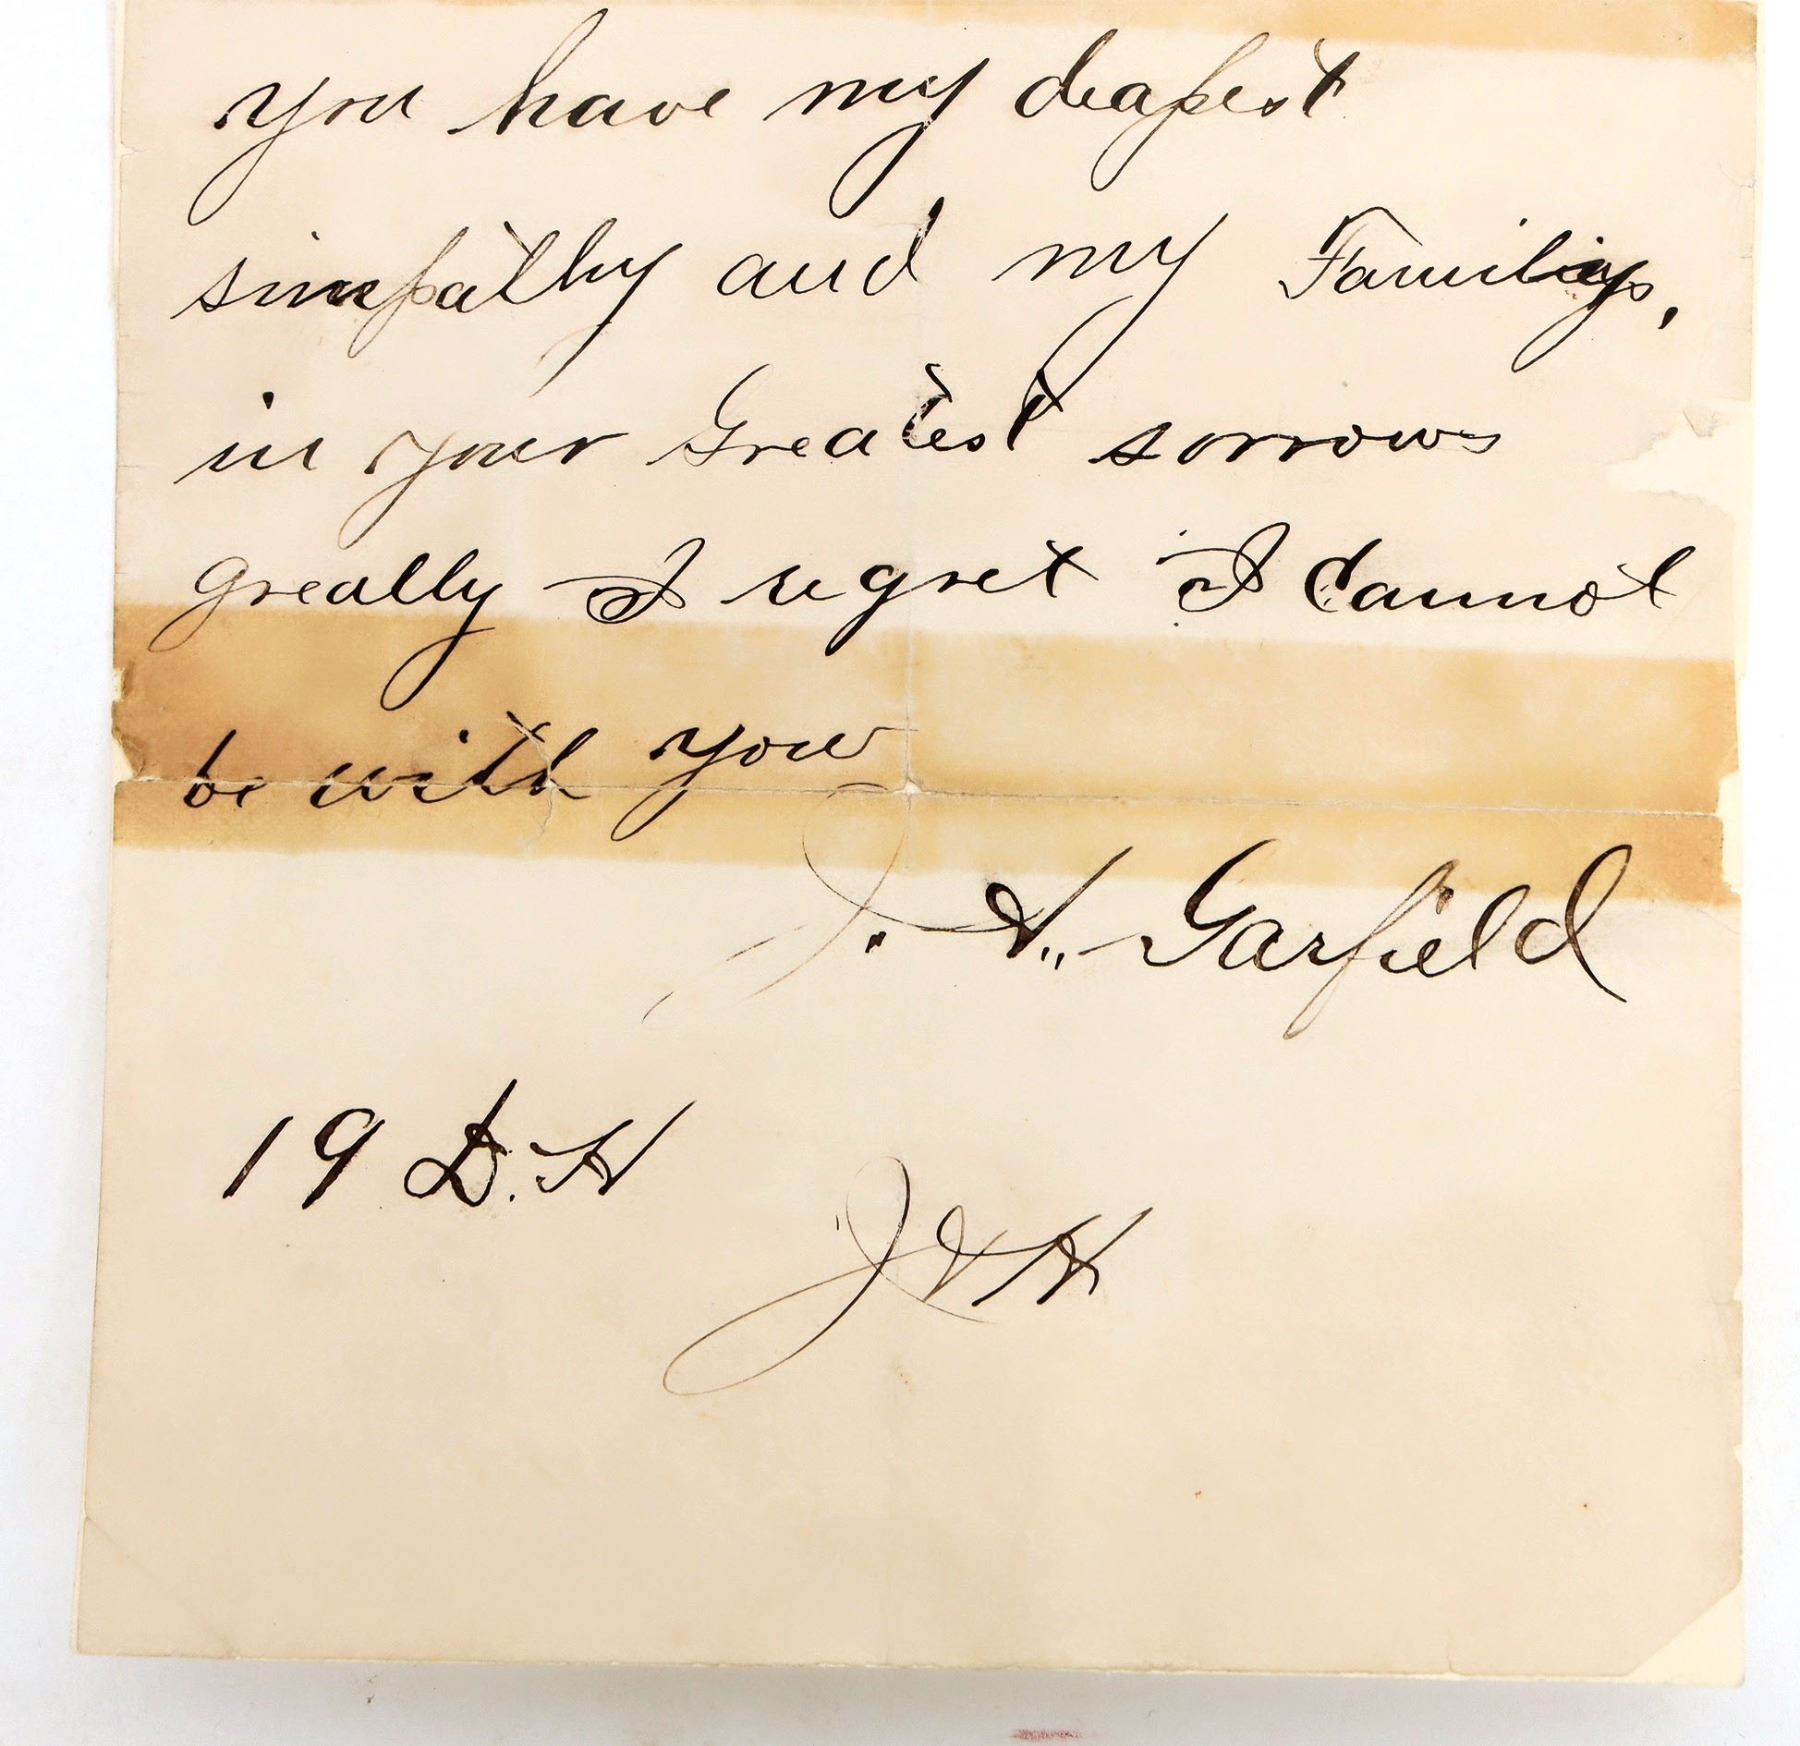 you have my deapest
simpathy and my Familiys,
in your Greatest sorrows
greatly I regret I cannot
be with you
J. A. Garfield
19 D. H